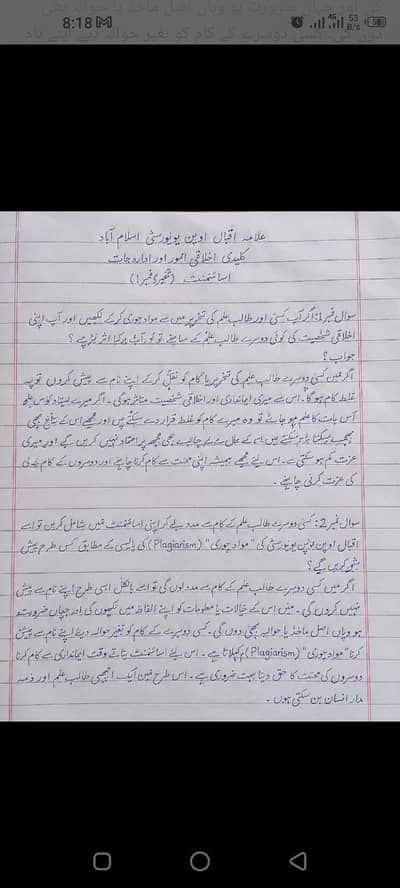 8:18 M
4G 53 B/s 58
دوں گی۔ کسی دوسرے کے کام کو بغیر حوالہ دیے اپنے نام
علامہ اقبال اوپن یونیورسٹی اسلام آباد
کلیدی اخلاقی امور اور ادارہ جات
اسائنمنٹ (تحریری نمبر 1)
سوال نمبر 1: اگر آپ کسی اور طالب علم کی تحریر میں سے مواد چوری کرکے لکھیں اور آپ اپنی
اخلاقی شخصیت کی کوئی دوسرے طالب علم کے سامنے تو تو آپ پر کیا اثر پڑے؟
جواب:
اگر میں کسی دوسرے طالب علم کی تحریر یا کام کو نقل کر کے اپنے نام سے پیش کروں تو یہ
غلط کام ہوگا۔ اس سے میری ایمانداری اور اخلاقی شخصیت متاثر ہوگی۔ اگر میرے
اس بات کا علم ہو جائے تو وہ میرے کام کو غلط قرار دے سکتے ہیں اور مجھے اس کے نتائج بھی
بھگتنا پڑ سکتے ہیں اس کے علاوہ بھی مجھ پر اعتماد نہیں کریں گے اور میری
عزت کم ہو سکتی ہے۔ اس لیے مجھے ہمیشہ اپنی محنت سے کام کرنا چاہیئے اور دوسروں کے کام
کی عزت کرنی چاہیئے۔
سوال نمبر 2: کسی دوسرے طالب علم کے کام سے مدد لے کر اپنی اسائنمنٹ میں شامل کریں تو اسے
اقبال اوپن یونیورسٹی کی "مواد چوری" (Plagiarism) کی پالیسی کے مطابق کس طرح پیش
کریں گے؟
اگر میں کسی دوسرے طالب علم کے کام سے مدد لوں گی تو اسے بالکل اسی طرح اپنے نام سے پیش
نہیں کروں گی۔ میں اس کے خیالات یا معلومات کو اپنے الفاظ میں لکھوں گی اور جہاں ضرورت
ہو وہاں اصل ماخذ یا حوالہ بھی دوں گی۔ کسی دوسرے کے کام کو بغیر حوالہ دیے اپنے نام سے پیش
کرنا "مواد چوری" (Plagiarism) کہلاتا ہے۔ اس لیے اسائنمنٹ بناتے وقت ایمانداری سے کام کرنا
دوسروں کی محنت کا حق دینا بہت ضروری ہے۔ اس طرح میں ایک اچھی طالب علم اور ذمہ
دار انسان بن سکتی ہوں۔